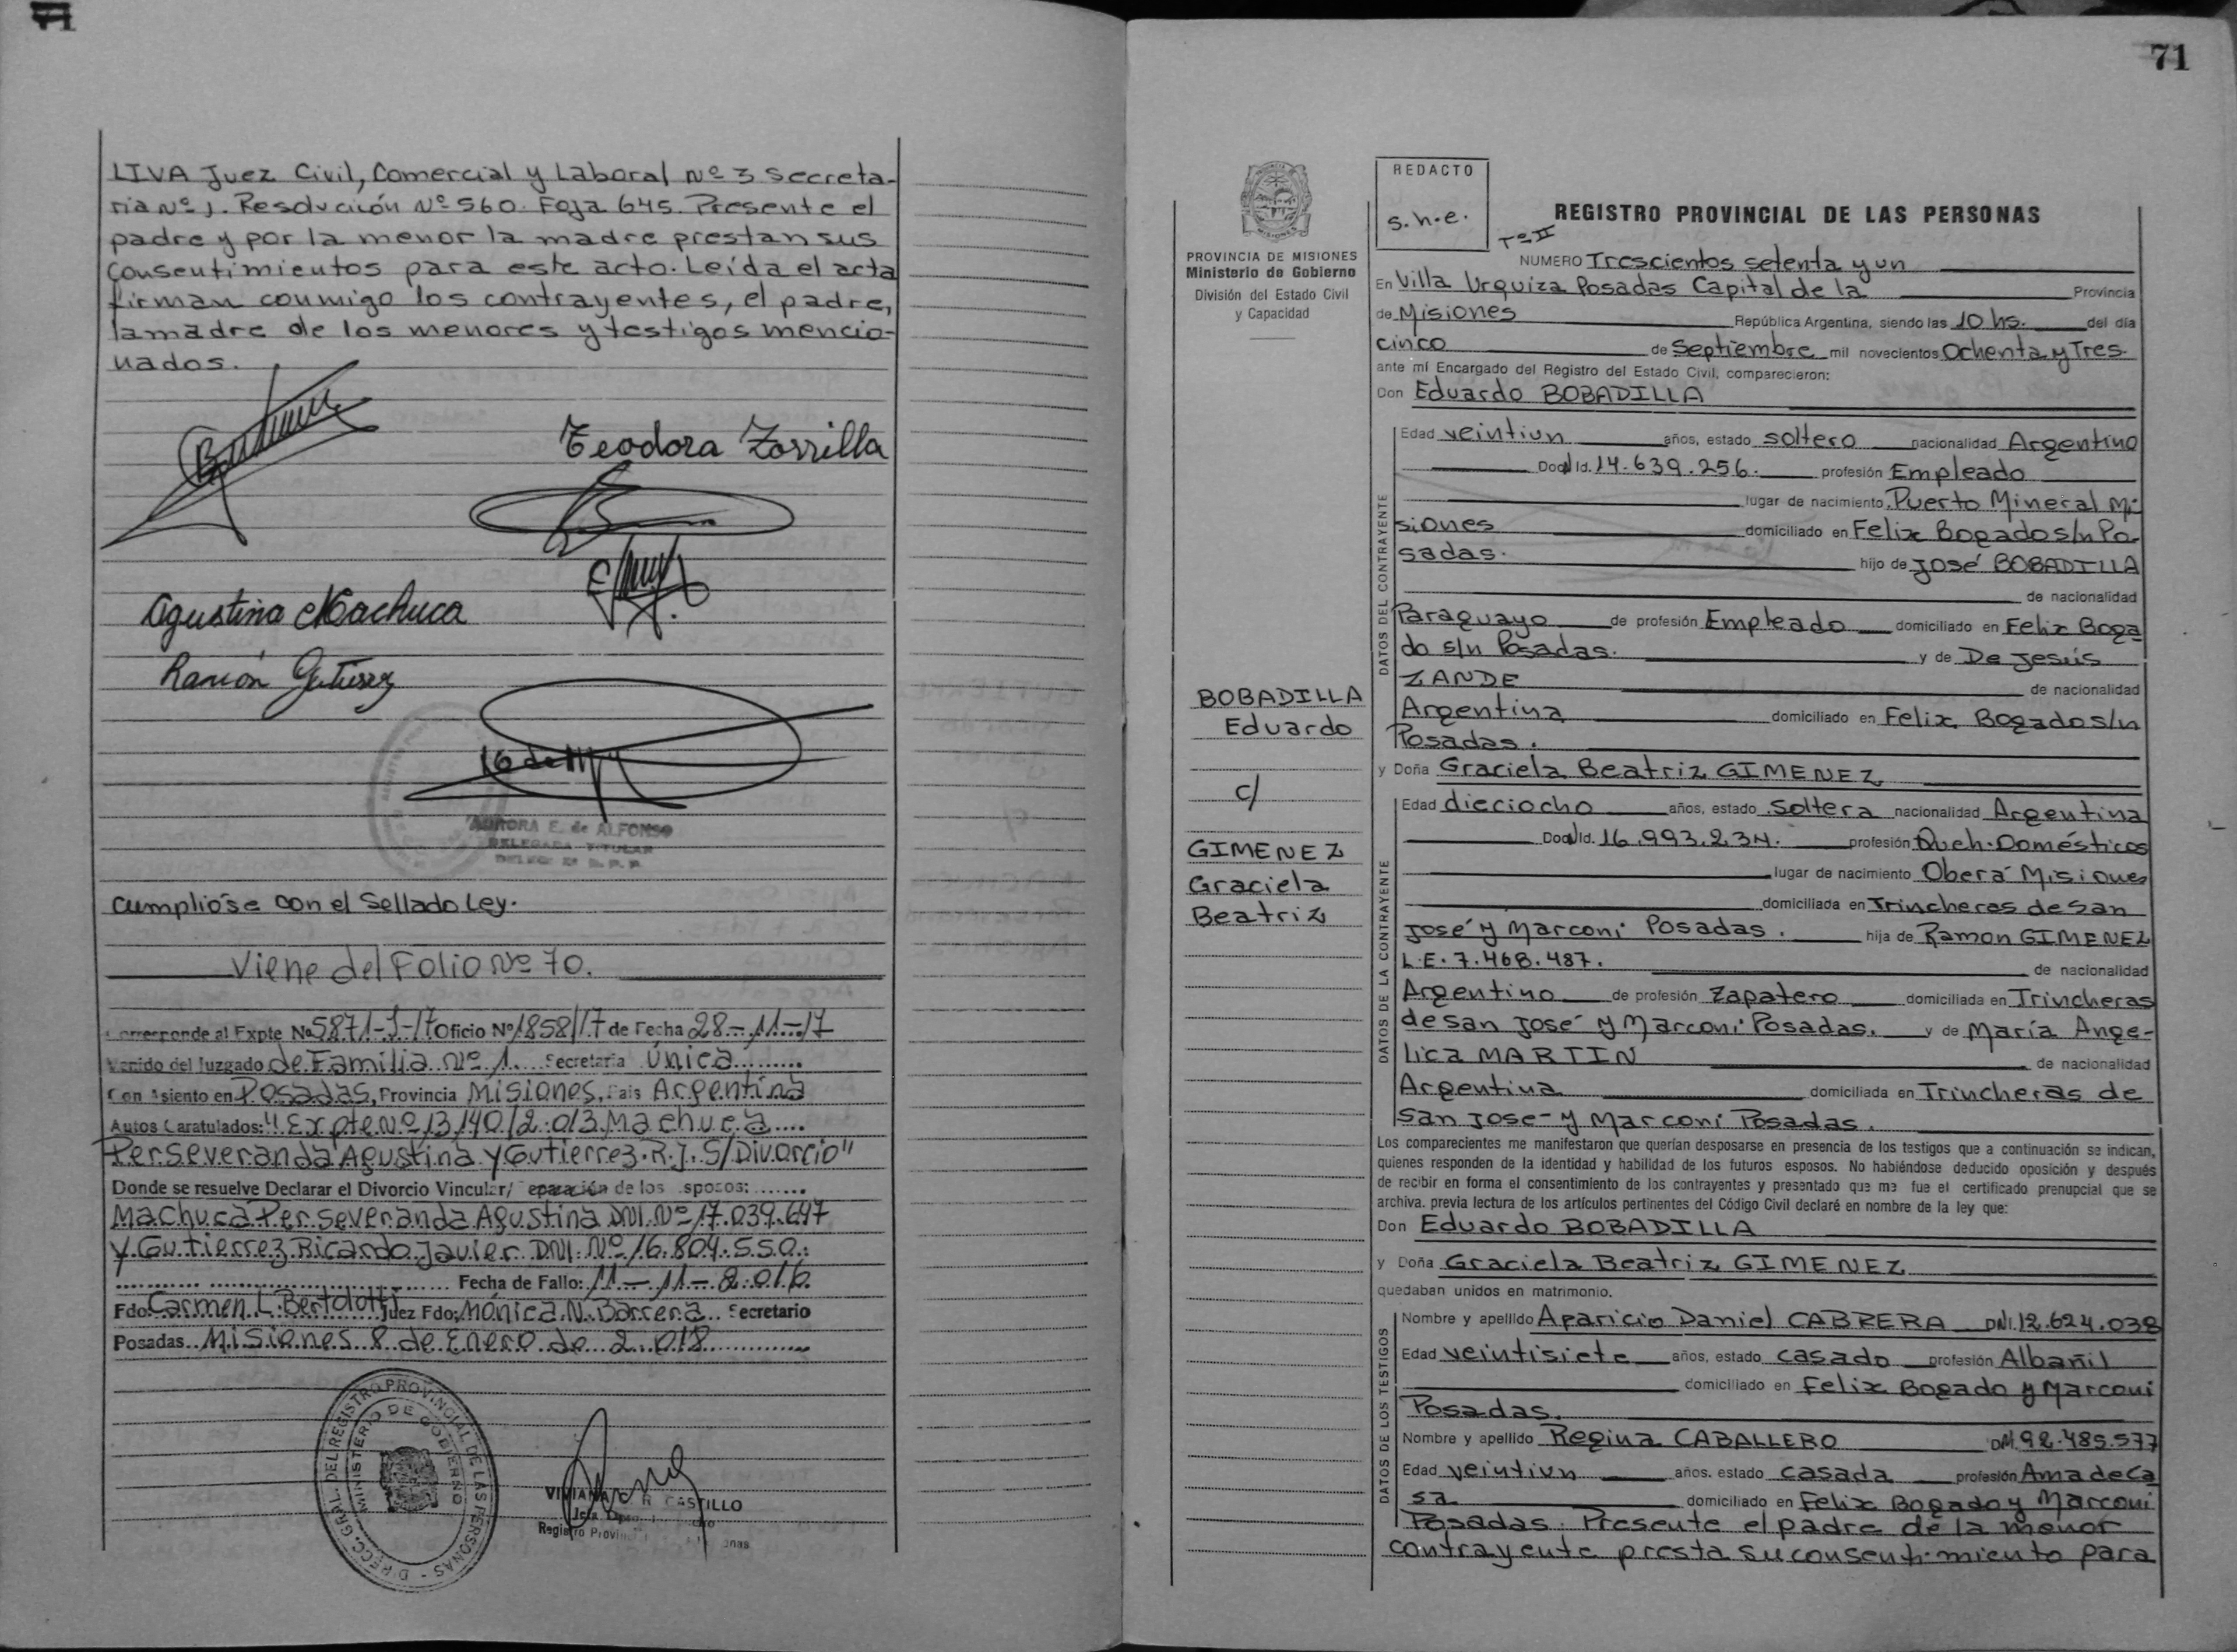 71
LIVA Juez Civil, Comercial y Laboral Nº 3 Secreta-
ria Nº 1. Resolución Nº 560. Foja 645. Presente el
padre y por la menor la madre prestan sus
consentimientos para este acto. Leída el acta
firman conmigo los contrayentes, el padre,
la madre de los menores y testigos mencio-
nados.
Teodora Zorrilla
Agustina Machuca
Ramón Gutierrez
AURORA E. de ALFONSO
DELEGADA TITULAR
cumplióse con el Sellado Ley.
Viene del Folio Nº 70.
Corresponde al Expte Nº 5871-J-17 Oficio Nº 1858/17 de Fecha 28-11-17
Venido del Juzgado de Familia Nº 1. Secretaria Única
Con Asiento en Posadas, Provincia Misiones, Pais Argentina
Autos Caratulados: "Expte Nº 13140/2.013 Machuca
Perseveranda Agustina y Gutierrez R.J. S/Divorcio"
Donde se resuelve Declarar el Divorcio Vincular/Separación de los esposos:
Machuca Perseveranda Agustina DNI. Nº 17.039.697
y Gutierrez Ricardo Javier DNI. Nº 16.804.550.
Fecha de Fallo: 11-11-2.016.
Fdo: Carmen L. Bertolotti Juez Fdo: Mónica N. Barrera Secretario
Posadas Misiones 8 de Enero de 2.018
DIRECC. GRAL. DEL REGISTRO PROVINCIAL DE LAS PERSONAS -
MINISTERIO DE GOBIERNO
VIVIANA R. CASTILLO
Registro Provin
71
REDACTO
s.h.e.
PROVINCIA DE MISIONES
Ministerio de Gobierno
División del Estado Civil
y Capacidad
BOBADILLA
Eduardo
c/
GIMENEZ
Graciela
Beatriz
REGISTRO PROVINCIAL DE LAS PERSONAS
Tº II
NUMERO Trescientos setenta y un
En Villa Urquiza Posadas Capital de la Provincia
de Misiones República Argentina, siendo las 10 hs. del día
cinco de Septiembre mil novecientos Ochenta y Tres.
ante mí Encargado del Registro del Estado Civil, comparecieron:
Don Eduardo BOBADILLA
DATOS DEL CONTRAYENTE
Edad veintiun años, estado soltero nacionalidad Argentino
Doc. Id. 14.639.256. profesión Empleado
lugar de nacimiento Puerto Mineral Mi-
siones domiciliado en Felix Bogado s/n Po-
sadas. hijo de José BOBADILLA
de nacionalidad
Paraguayo de profesión Empleado domiciliado en Felix Boga
do s/n Posadas. y de De Jesús
ZANDE de nacionalidad
Argentina domiciliado en Felix Bogado s/n
Posadas.
y Doña Graciela Beatriz GIMENEZ
DATOS DE LA CONTRAYENTE
Edad dieciocho años, estado soltera nacionalidad Argentina
Doc. Id. 16.993.234. profesión Queh. Domésticos
lugar de nacimiento Oberá Misiones
domiciliada en Trincheras de San
José y Marconi Posadas. hija de Ramon GIMENEZ
L.E. 7.468.487. de nacionalidad
Argentino de profesión Zapatero domiciliada en Trincheras
de San José y Marconi Posadas. y de María Ange-
lica MARTIN de nacionalidad
Argentina domiciliada en Trincheras de
San Jose y Marconi Posadas.
Los comparecientes me manifestaron que querían desposarse en presencia de los testigos que a continuación se indican,
quienes responden de la identidad y habilidad de los futuros esposos. No habiéndose deducido oposición y después
de recibir en forma el consentimiento de los contrayentes y presentado que me fue el certificado prenupcial que se
archiva. previa lectura de los artículos pertinentes del Código Civil declaré en nombre de la ley que:
Don Eduardo BOBADILLA
y Doña Graciela Beatriz GIMENEZ
quedaban unidos en matrimonio.
DATOS DE LOS TESTIGOS
Nombre y apellido Aparicio Daniel CABRERA DNI. 12.624.038
Edad veintisiete años, estado casado profesión Albañil
domiciliado en Felix Bogado y Marconi
Posadas.
Nombre y apellido Regina CABALLERO DNI 92.485.577
Edad veintiun años. estado casada profesión Ama de Ca
sa domiciliado en Felix Bogado y Marconi
Posadas. Presente el padre de la menor
contrayente presta su consentimiento para